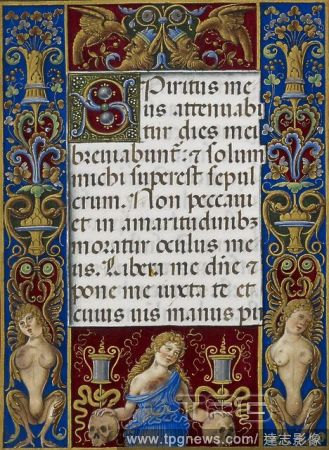 Spiritus me
us attenuabi
tur dies mei
breviabunt: & solum
michi superest sepul
crum. Non peccavi
et in amaritudinibꝫ
moratur oculus me
us. Libera me dñe &
pone me iuxta te et
cuius vis manus pu
www.tpgnews.com/ 達志影像